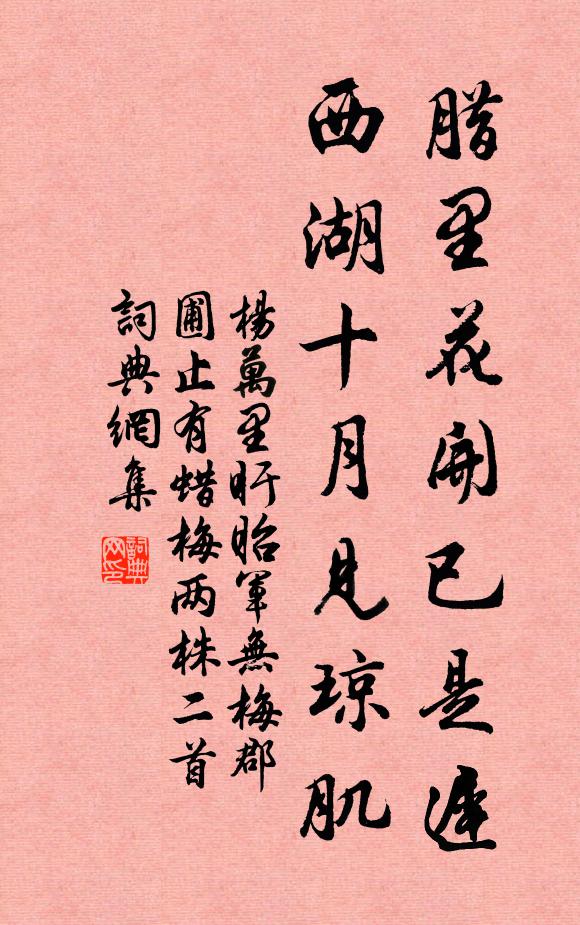 腊里花開已是遲
西湖十月見瓊肌
楊萬里盱眙軍無梅郡
圃止有蜡梅两株二首
詞典網集
詞典网印